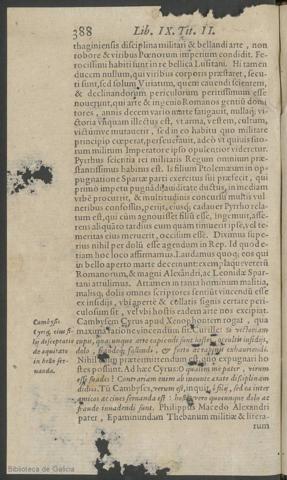 388 Lib. IX. Tit. II.
thaginiensis disciplina militari & bellandi arte, non
robore & viribus Pœnorum imperium condidit. Fe-
rocissimi habiti sunt in re bellica Lusitani. Hi tamen
ducem nullum, qui viribus corporis præstaret, secu-
ti sunt, sed solum Viriatum, quem cavendi scientem,
& declinandorum periculorum peritissimum esse
nouerunt, qui arte & ingenio Romanos gentiū domi
tores, annis decem vario marte fatigauit, nullaq; vi-
ctoria vnquam illectus est, vt arma, vestem, cultum,
victūmve mutauerit, sed in eo habitu quo militare
principio cœperat, perseuerauit, adeò vt quiuis sum-
mus militum Imperatore ipso opulentior videretur.
Pyrrhus scientia rei militaris Regum omnium præ-
stantissimus habitus est. Is filium Ptolemæum in op-
pugnatione Spartæ pari exercitus sui præfecit, qui
primo impetu pugnādi auiditate ductus, in mediam
vrbē procurrit, & multitudinis concursu multis vul-
neribus confossus, perijt, eiusq; cadauer Pyrrho rela-
tum est, qui cùm agnouisset filiū esse, ingemuit, asse-
rens aliquāto tardiùs eum quam timuerit ipse, vel te-
meritas eius meruerit, occisum esse. Diximus supe-
rius nihil per dolū esse agendum in Rep. Id quod e-
tiam hoc loco affirmamus. Laudamus quoq; eos qui
in bello aperto marte decernunt: exempla que veteres
Romanorum, & magni Alexādri, ac Leonidæ Spar-
tani attulimus. Attamen in tanta hominum malitia,
malisq; dolis omnes scriptores sentiūt vincendū esse
ex insidijs, vbi apertè & collatis signis certare peri-
culosum sit, vel vbi hostis eadem arte nos excipiat.
Cambysem Cyrus apud Xenophontem rogat, qua
maximè ratione vincendi sint
Cambysis Cyriq, eius fi-
lij disceptatio
de æquitate
in bello ser-
uanda.
Nihilq; prætermittendum est quo expugnari ho
stes possint. Ad hæc Cyrus: O qualem me pater, virum
esse suades! Contrariam enim ab ineunte ætate disciplinam
didici. Tū Cambyses, verum est, inquit, ò fili, sed ea inter
amicos ac ciues seruanda est: hostes vero quocunque dolo ac
fraude inuadendi sunt. Philippus Macedo Alexandri
pater, Epaminundam Thebanum militiæ & litera-
rum
Biblioteca de Galicia